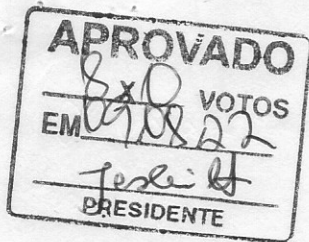 APROVADO
8x0 VOTOS
EM 09.08.22
PRESIDENTE